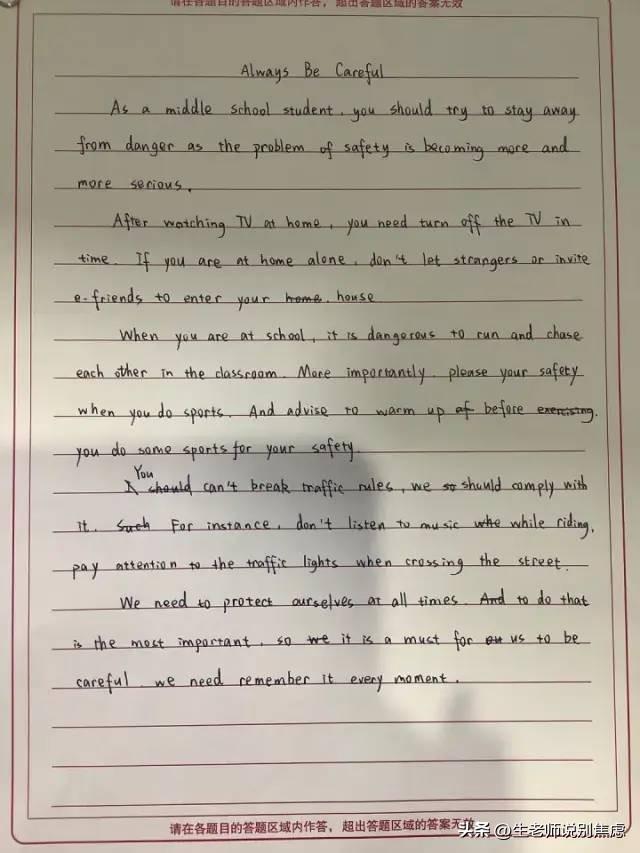 请在各题目的答题区域内作答，超出答题区域的答案无效
Always Be Careful
As a middle school student, you should try to stay away
from danger as the problem of safety is becoming more and
more serious.
After watching TV at home, you need turn off the TV in
time. If you are at home alone, don't let strangers or invite
e-friends to enter your home. house
When you are at school, it is dangerous to run and chase
each other in the classroom. More importantly, please your safety
when you do sports. And advise to warm up of before exercising.
you do some sports for your safety.
You
I should can't break traffic rules, we so should comply with
it. Such For instance, don't listen to music whe while riding,
pay attention to the traffic lights when crossing the street.
We need to protect ourselves at all times. And to do that
is the most important, so we it is a must for us to be
careful. we need remember it every moment.
请在各题目的答题区域内作答，超出答题区域的答案无效
头条 @生老师说别焦虑